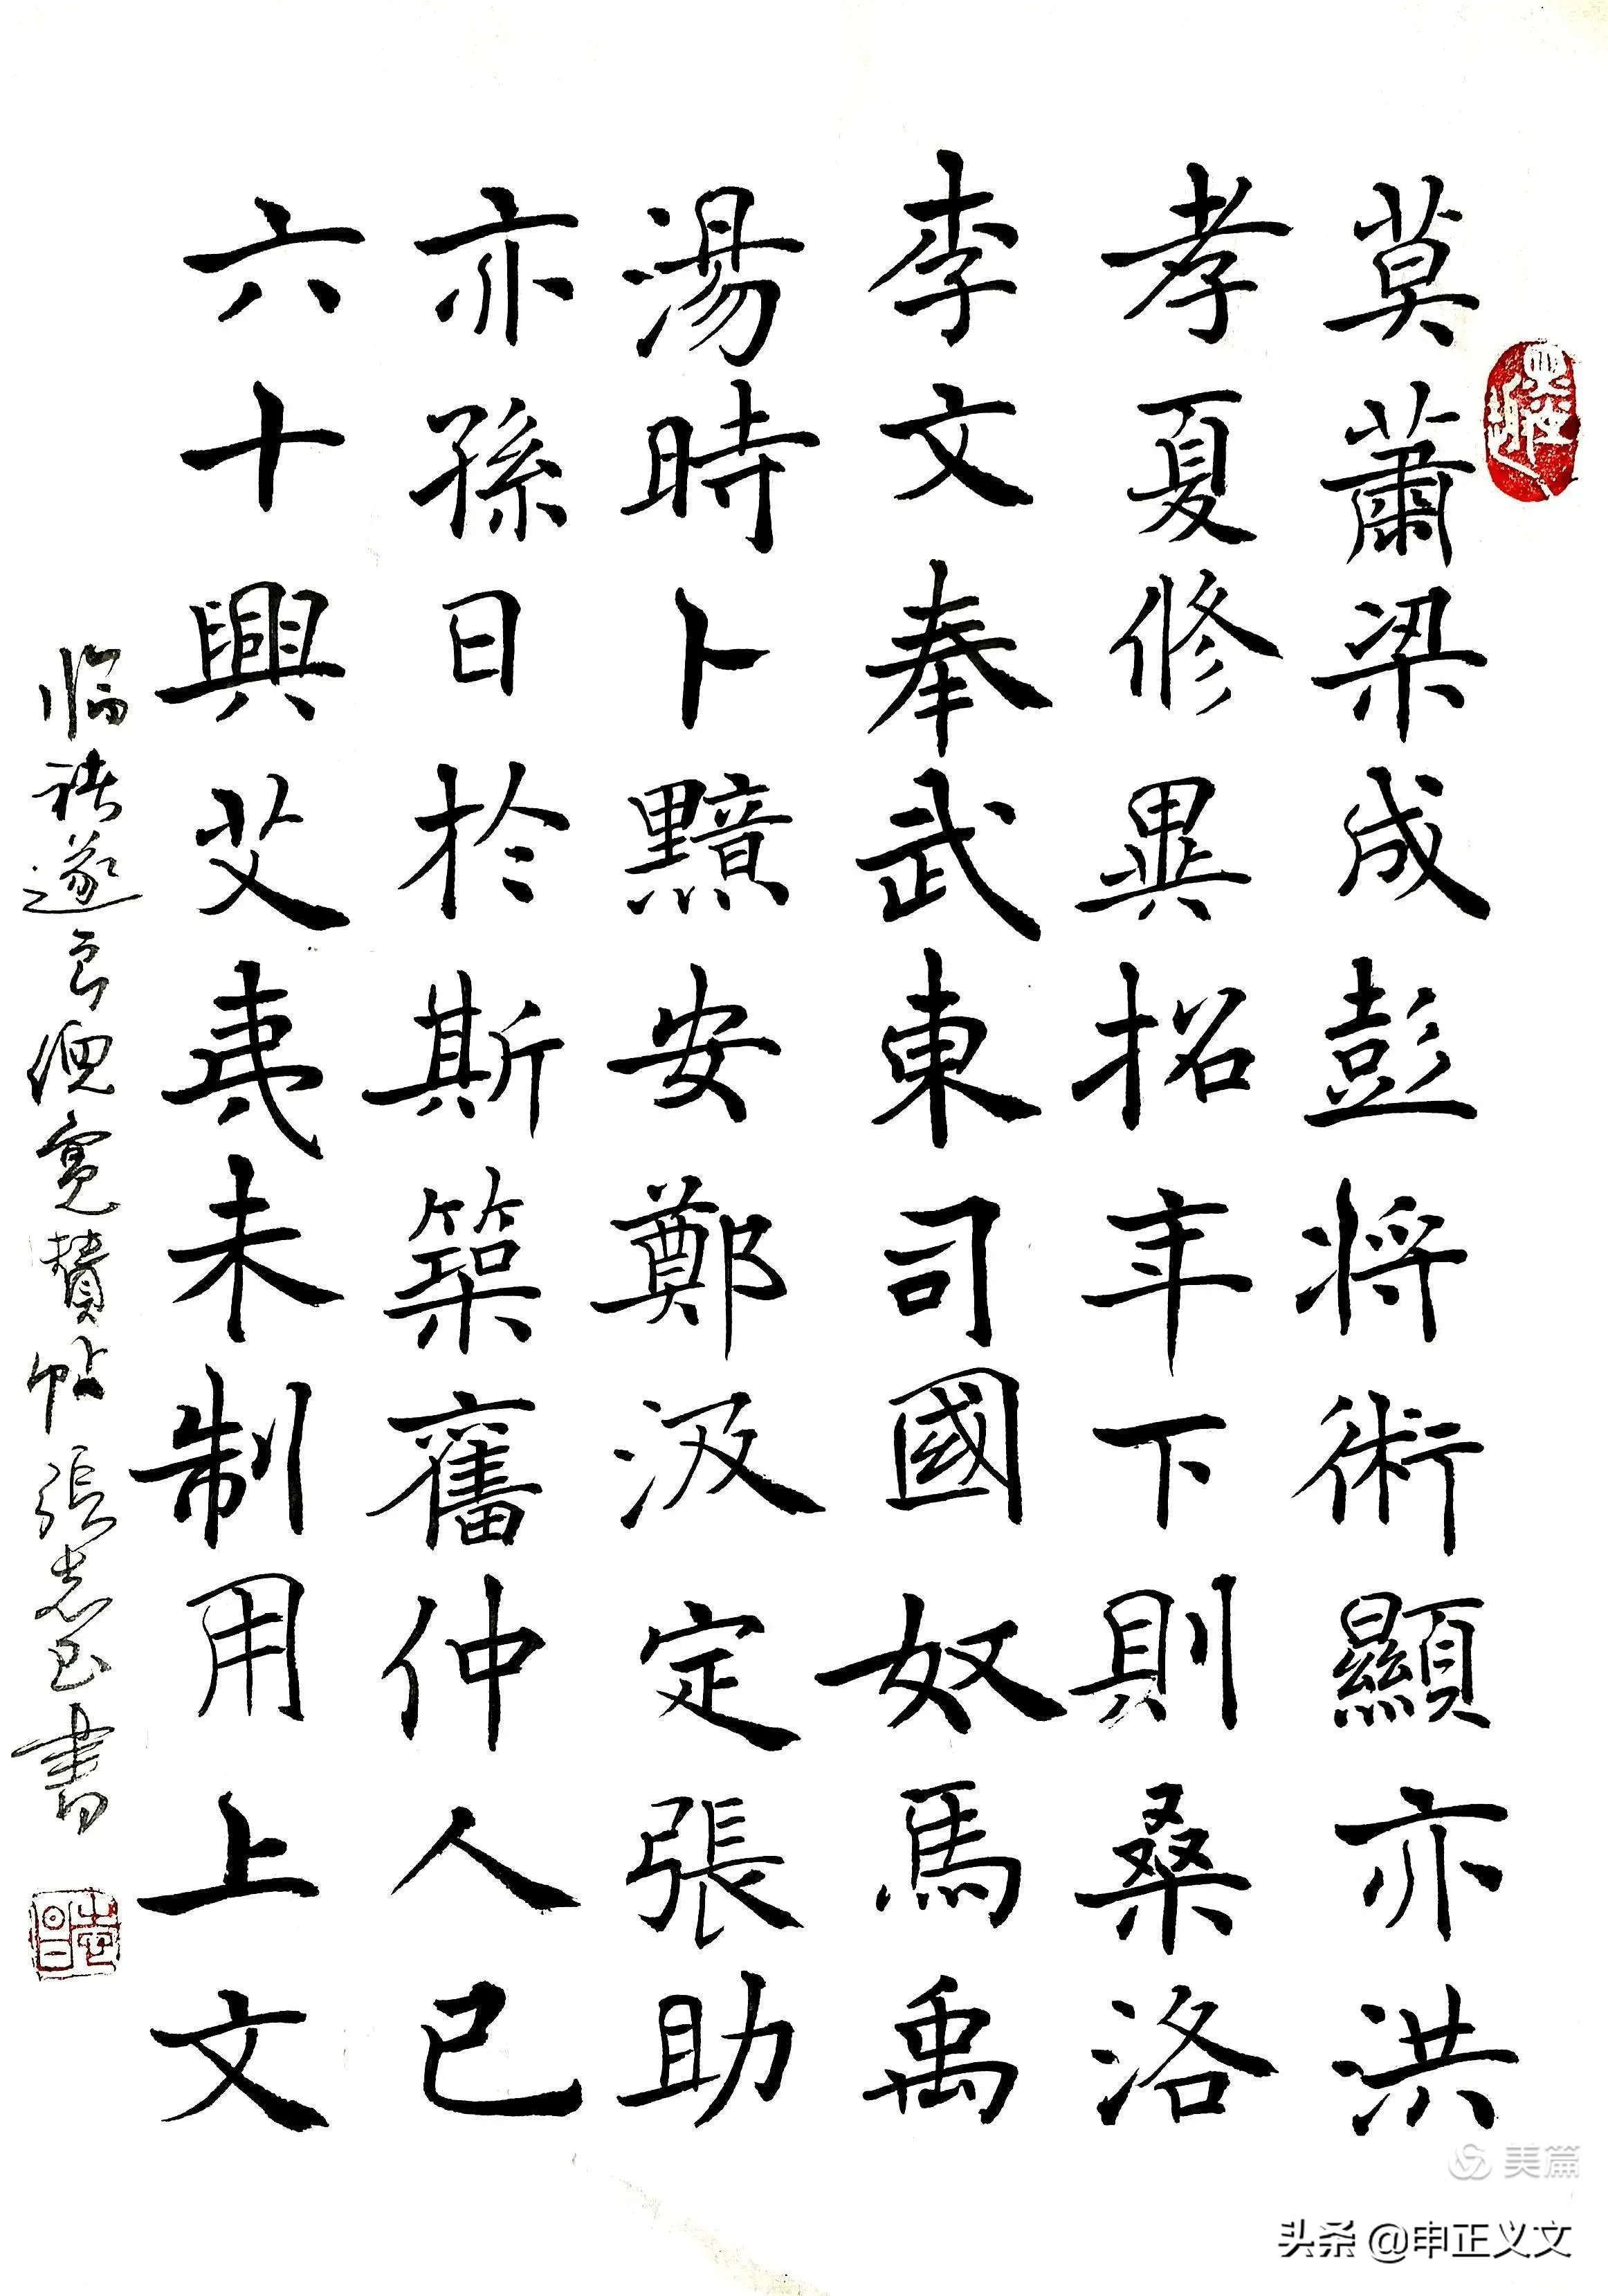 莫蕭梁成彭將術顯亦洪
孝夏修異招年下則桑洛
李文奉武東司國奴馬禹
湯時卜黯安鄭汲定張助
亦孫日於斯築舊仲人已
六十興艾夷未制用上文
臨褚遂良倪寬贊帖張志書
美篇
头条 @申正义文